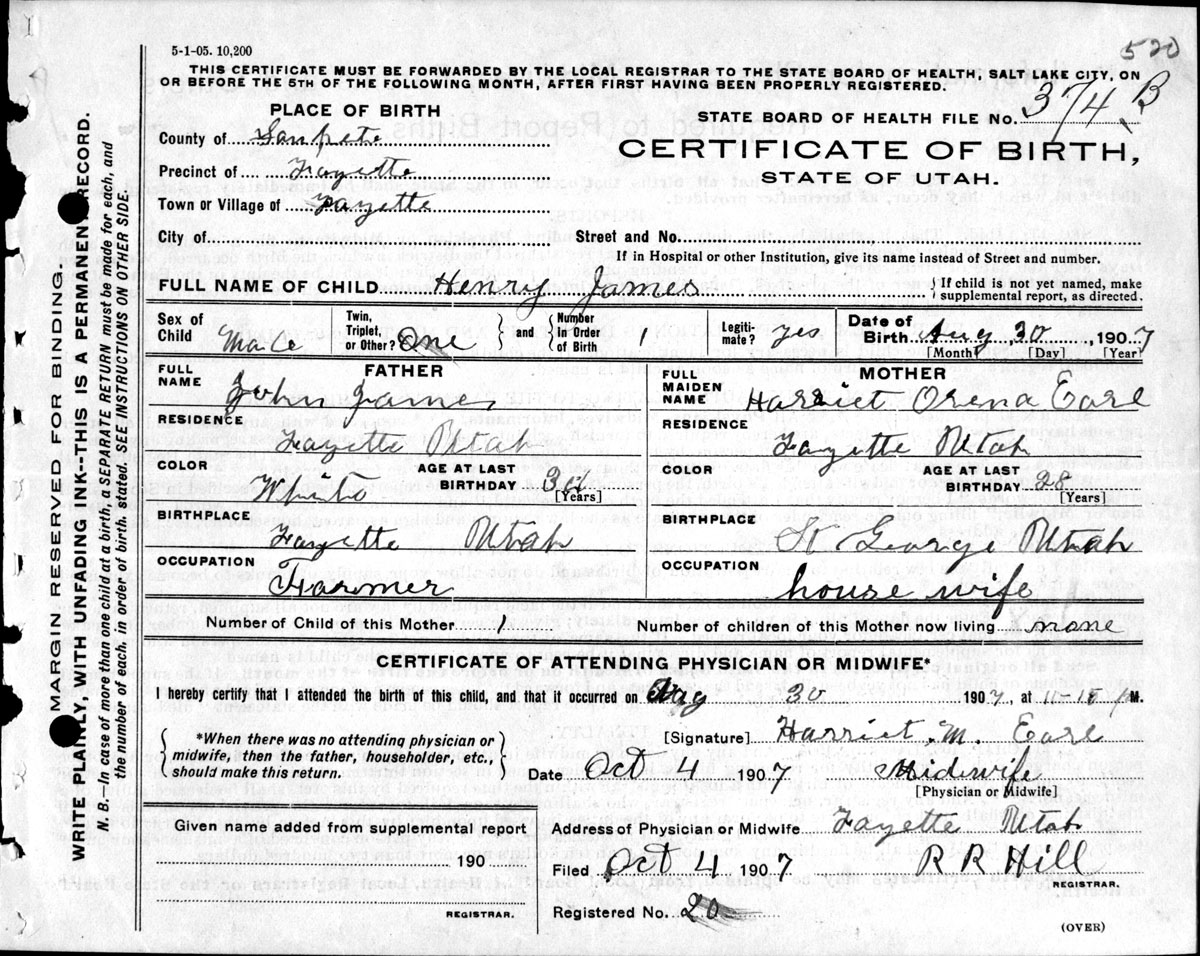 5-1-05. 10,200
520
THIS CERTIFICATE MUST BE FORWARDED BY THE LOCAL REGISTRAR TO THE STATE BOARD OF HEALTH, SALT LAKE CITY, ON
OR BEFORE THE 5TH OF THE FOLLOWING MONTH, AFTER FIRST HAVING BEEN PROPERLY REGISTERED.
PLACE OF BIRTH
STATE BOARD OF HEALTH FILE No. 374 B
County of Sanpete
CERTIFICATE OF BIRTH,
Precinct of Fayette
STATE OF UTAH.
Town or Village of Fayette
City of Street and No.
If in Hospital or other Institution, give its name instead of Street and number.
FULL NAME OF CHILD Henry James { If child is not yet named, make
supplemental report, as directed.
Sex of Child Male Twin, Triplet, or Other? One } and { Number In Order of Birth 1 Legiti-mate? yes Date of Birth Aug, 30, 1907
[Month] [Day] [Year]
FATHER MOTHER
FULL NAME John James FULL MAIDEN NAME Harriet Orena Earl
RESIDENCE RESIDENCE
Fayette Utah Fayette Utah
COLOR White AGE AT LAST BIRTHDAY [Years] COLOR AGE AT LAST BIRTHDAY 28 [Years]
BIRTHPLACE Fayette Utah BIRTHPLACE St George Utah
OCCUPATION Farmer OCCUPATION house wife
Number of Child of this Mother 1 Number of children of this Mother now living none
CERTIFICATE OF ATTENDING PHYSICIAN OR MIDWIFE*
I hereby certify that I attended the birth of this child, and that it occurred Aug 30 1907, at M.
[Signature] Harriet M. Earl
*When there was no attending physician or
midwife, then the father, householder, etc.,
should make this return.
Date Oct 4 1907 Midewife
[Physician or Midwife]
Given name added from supplemental report
Address of Physician or Midwife Fayette Utah
190
Filed Oct 4 1907 R R Hill
REGISTRAR.
REGISTRAR.
Registered No. 20
(OVER)
MARGIN RESERVED FOR BINDING.
WRITE PLAINLY, WITH UNFADING INK--THIS IS A PERMANENT RECORD.
N. B.--In case of more than one child at a birth, a SEPARATE RETURN must be made for each, and
the number of each, in order of birth, stated. SEE INSTRUCTIONS ON OTHER SIDE.